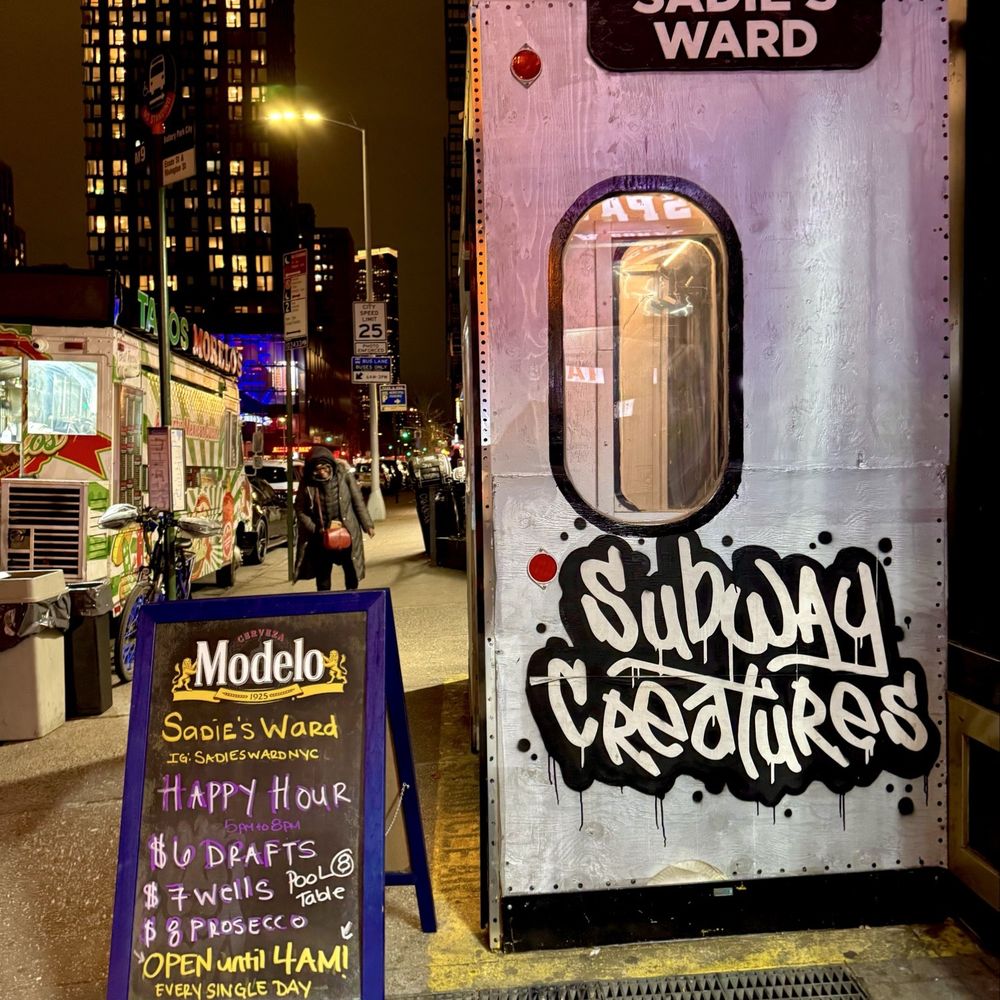 SADIE'S
WARD
SPA
Subway
Creatures
CERVEZA
Modelo
1925
SADIE'S WARD
IG: SADIESWARDNYC
HAPPY HOUR
5PM to 8PM
$6 DRAFTS
$7 WELLS
POOL 8
Table
$8 PROSECCO
OPEN until 4AM!
EVERY SINGLE DAY
TACOS MORELOS
M9
Battery Park City
Essex St &
Rivington St
CITY
SPEED
LIMIT
25
BUS LANE
BUSES ONLY